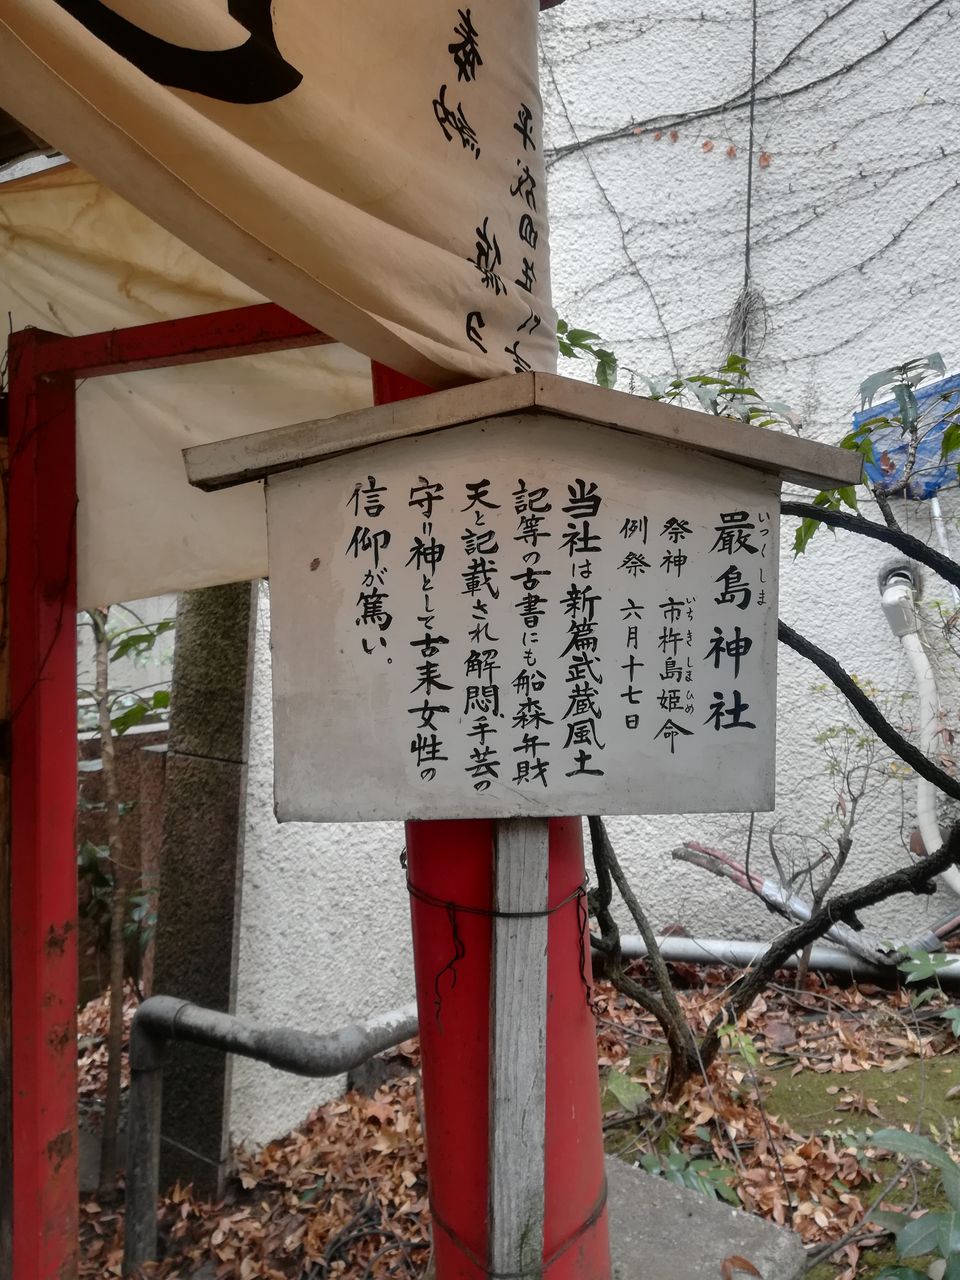 奉納
平成四年
嚴島神社
いつくしま
祭神 市杵島姫命
いちきしまひめ
例祭 六月十七日
当社は新篇武蔵風土
記等の古書にも船森弁財
天と記載され解悶、手芸の
守り神として古来女性の
信仰が篤い。